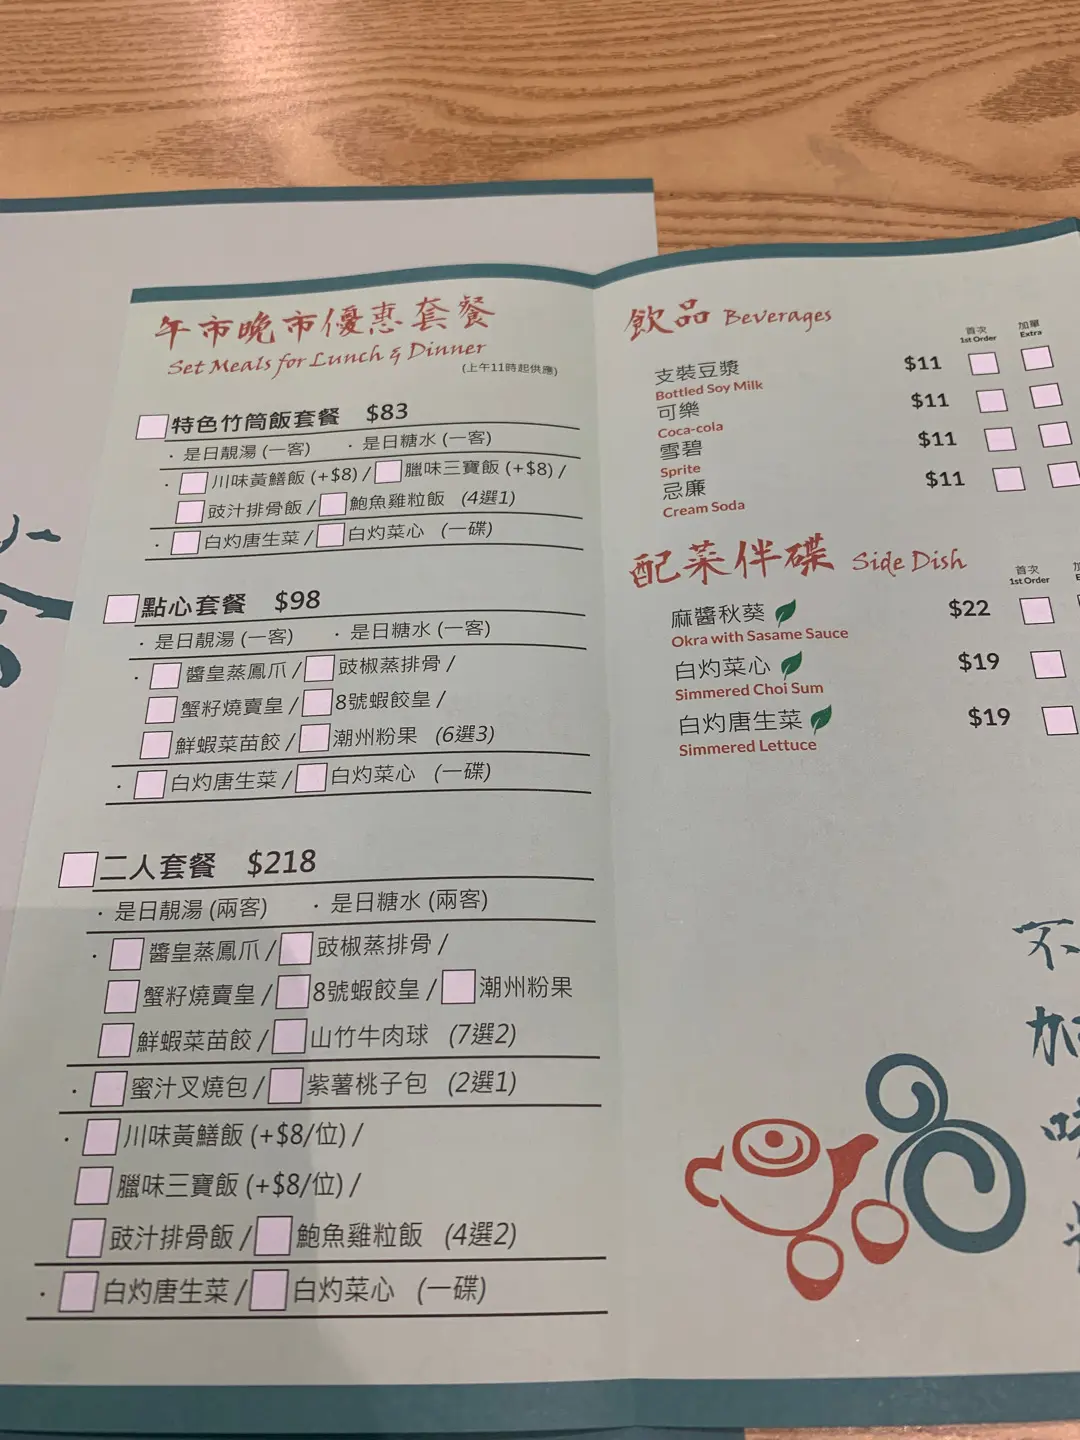 午市晚市優惠套餐
Set Meals for Lunch & Dinner
(上午11時起供應)
特色竹筒飯套餐 $83
· 是日靚湯 (一客) · 是日糖水 (一客)
· 川味黃鱔飯 (+$8) / 臘味三寶飯 (+$8) /
豉汁排骨飯 / 鮑魚雞粒飯 (4選1)
· 白灼唐生菜 / 白灼菜心 (一碟)
點心套餐 $98
· 是日靚湯 (一客) · 是日糖水 (一客)
· 醬皇蒸鳳爪 / 豉椒蒸排骨 /
蟹籽燒賣皇 / 8號蝦餃皇 /
鮮蝦菜苗餃 / 潮州粉果 (6選3)
· 白灼唐生菜 / 白灼菜心 (一碟)
二人套餐 $218
· 是日靚湯 (兩客) · 是日糖水 (兩客)
· 醬皇蒸鳳爪 / 豉椒蒸排骨 /
蟹籽燒賣皇 / 8號蝦餃皇 / 潮州粉果
鮮蝦菜苗餃 / 山竹牛肉球 (7選2)
· 蜜汁叉燒包 / 紫薯桃子包 (2選1)
· 川味黃鱔飯 (+$8/位) /
臘味三寶飯 (+$8/位) /
豉汁排骨飯 / 鮑魚雞粒飯 (4選2)
· 白灼唐生菜 / 白灼菜心 (一碟)
飲品 Beverages
首次 加單
1st Order Extra
支裝豆漿 $11
Bottled Soy Milk
可樂 $11
Coca-cola
雪碧 $11
Sprite
忌廉 $11
Cream Soda
配菜伴碟 Side Dish
首次
1st Order
麻醬秋葵 $22
Okra with Sasame Sauce
白灼菜心 $19
Simmered Choi Sum
白灼唐生菜 $19
Simmered Lettuce
不
加
味